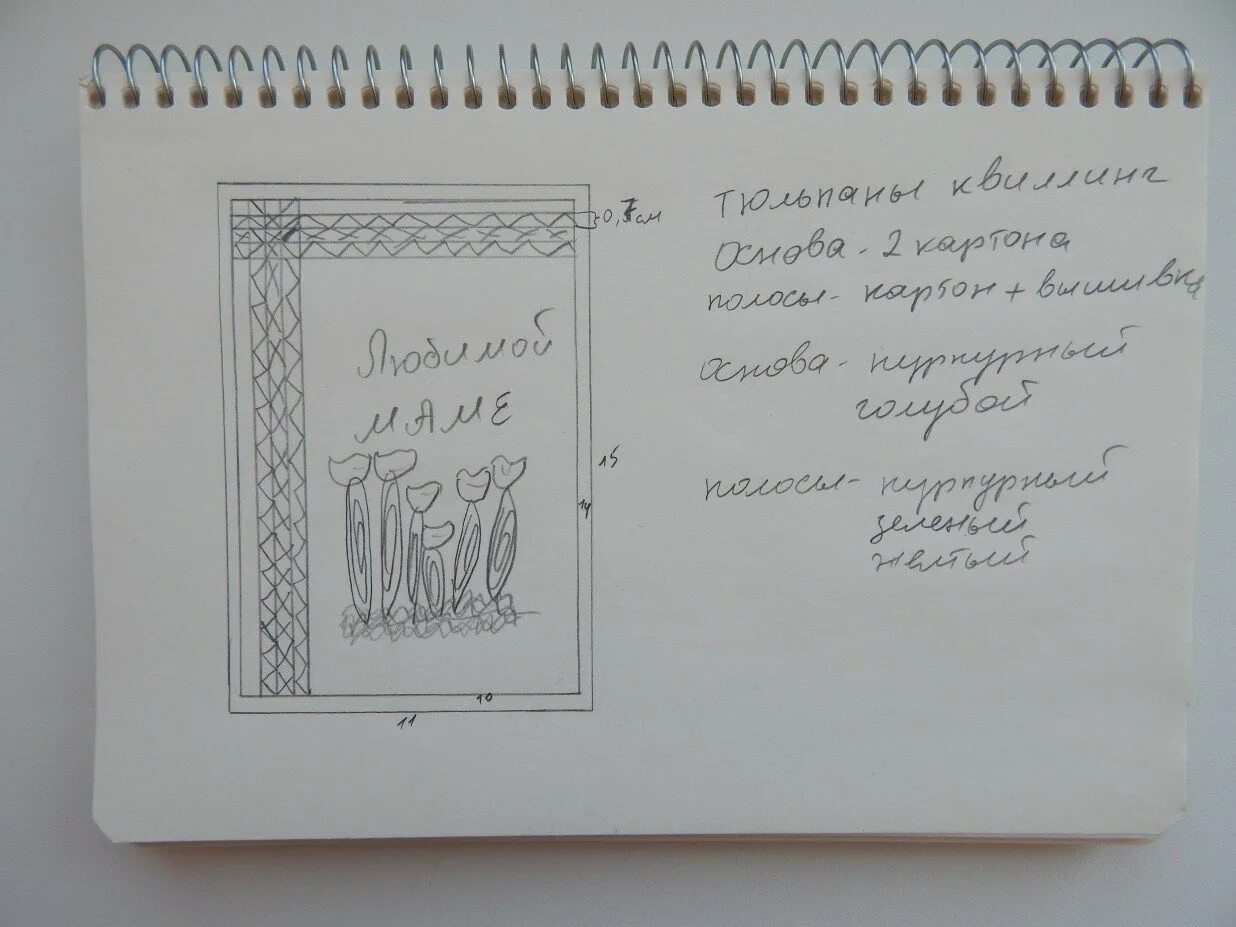 Любимой
МАМЕ
0,7см
15
14
10
11
тюльпаны квиллинг
Основа - 2 картона
полосы - картон + вышивка
основа - пурпурный
голубой
полосы - пурпурный
зеленый
желтый